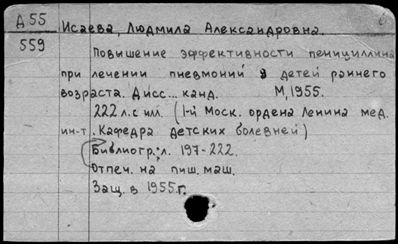 Д 55
559
Исаева, Людмила Александровна.
Повышение эффективности пенициллина
при лечении пневмонии у детей раннего
возраста. Дисс... канд. М, 1955.
222 л. с илл. (1-й Моск. ордена Ленина мед.
ин-т. Кафедра детских болезней)
Библиогр.: л. 197-222.
Отпеч. на пиш. маш.
Защ. в 1955 г.